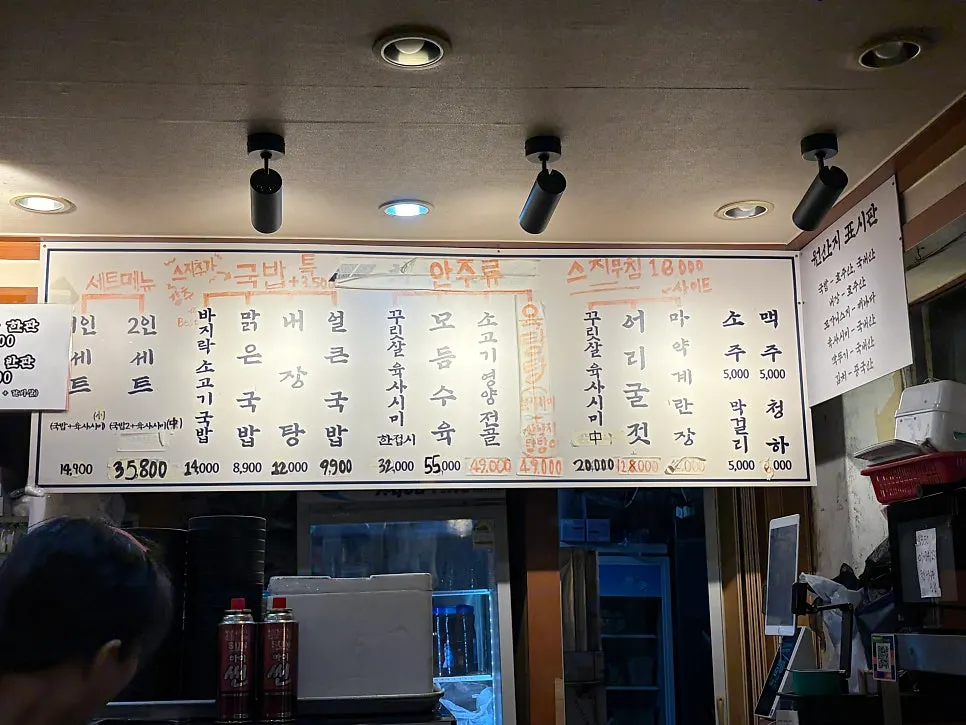 세트메뉴
1인세트
(국밥+육사시미(小))
14,900
2인세트
(국밥2+육사시미(中))
35,800
스지추가
국밥 특
+3,500
바지락소고기국밥
14,000
맑은국밥
8,900
내장탕
12,000
설큰국밥
9,900
안주류
꾸릿살육사시미
한접시
32,000
모듬수육
55,000
소고기영양전골
49,000
49,000
스지무침 18000
사이드
꾸릿살육사시미
中
20,000
어리굴젓
마약계란장
소주
5,000
막걸리
5,000
맥주
5,000
청하
원산지 표시판
국밥 - 호주산, 국내산
내장 - 호주산
육사시미 - 국내산
깍두기 - 국내산
김치 - 중국산
한판
한판